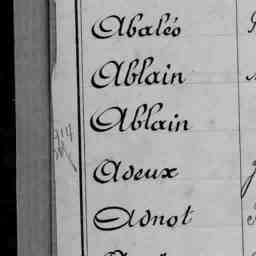 Abaléo
Ablain
Ablain
Adeux
Adnot